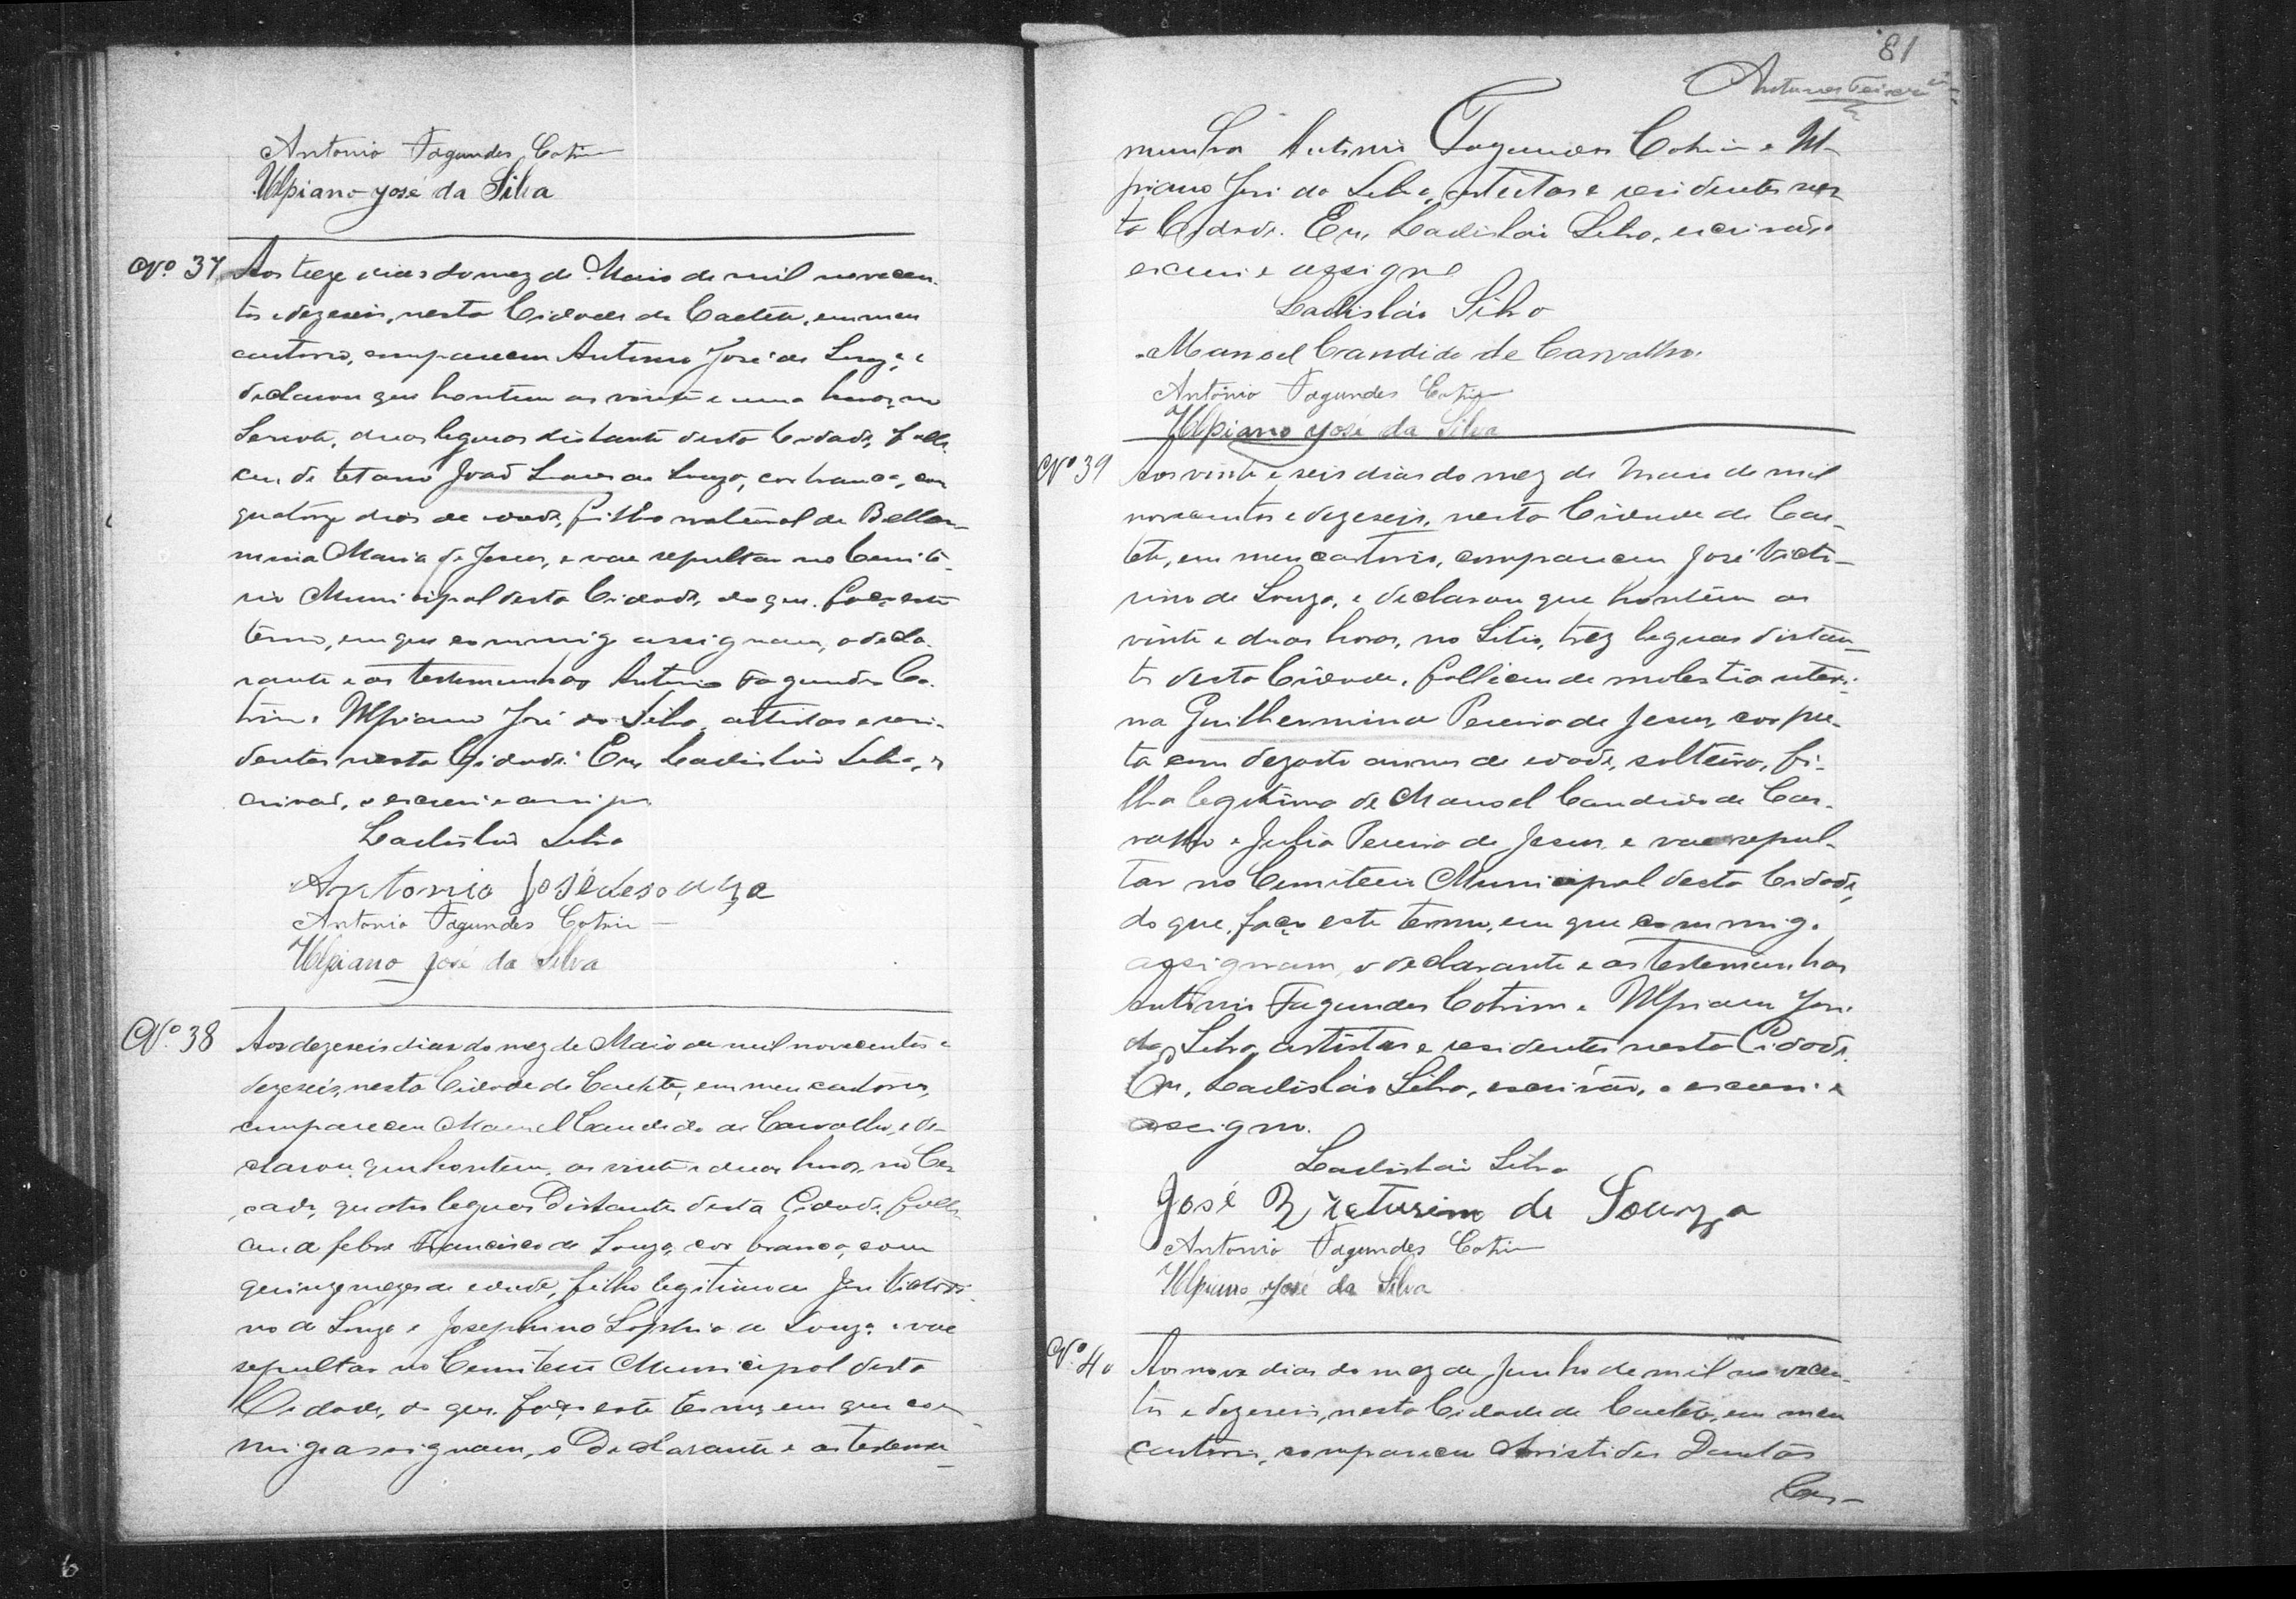 Antonio Fagundes Cotrim
Ulpiano José da Silva
Nº 37 Aos treze dias do mez de Maio de mil novecen-
tos e dezeseis, nesta Cidade de Caeteté, em meu
cartorio, compareceu Antonio José de Souza, e
declarou que hontem as vinte e uma horas, no
duas leguas distante desta Cidade, falle-
ceu de tetano João de Souza, cor branca, com
quatorze dias de edade, filho natural de Bellar-
mina Maria de Jesus, e vae sepultar no Cemite-
rio Municipal desta Cidade, do que faço este
termo, em que commigo assignam, o decla-
rante e as testemunhas Antonio Fagundes Co-
trim e Ulpiano José da Silva, artistas e resi-
dentes nesta Cidade. Eu, Ladisláo Silva, es-
crivão, o escrevi e assigno
Ladisláo Silva
Antonio José de souza
Antonio Fagundes Cotrim
Ulpiano José da Silva
Nº 38 Aos dezeseis dias do mez de Maio de mil novecentos e
dezeseis, nesta Cidade de Caeteté, em meu cartorio,
compareceu Manoel Candido de Carvalho, e de-
clarou que hontem, as vinte e duas horas, no
quatro leguas Distante desta Cidade, falle-
ceu de febre Francisco de Souza, cor branca, com
quinze mezes de edade, filho legitimo de José Victori-
no de Souza e Josephina Sophia de Souza, e vae
sepultar no Cemiterio Municipal desta
Cidade, do que faço este termo, em que com-
migo assignam, o Declarante e as testemu-
81
Antunes Teixeira
munha Antonio Fagundes Cotrim e Ul-
piano José da Silva, artistas e residentes nes-
ta Cidade. Eu, Ladisláo Silva, escrivão o
escrevi e assigno
Ladisláo Silva
Manoel Candido de Carvalho.
Antonio Fagundes Cotrim
Ulpiano José da Silva
Nº 39 Aos vinte e seis dias do mez de Maio de mil
novecentos e dezeseis, nesta Cidade de Cae-
teté, em meu cartorio, compareceu José Victo-
rino de Souza, e declarou que hontem as
vinte e duas horas, no Sitio, trez leguas distan-
te desta Cidade, falleceu de molestia uteri-
na Guilhermina Pereira de Jesus, cor pre-
ta com dezoito annos de edade, solteira, fi-
lha legitima de Manoel Candido de Car-
valho e Julia Pereira de Jesus, e vae sepul-
tar no Cemiterio Municipal desta Cidade,
do que, faço este termo, em que commigo
assignam, o declarante e as testemunhas
Antonio Fagundes Cotrim e Ulpiano José
da Silva, artistas e residentes nesta Cidade.
Eu, Ladisláo Silva, escrivão, o escrevi e
assigno.
Ladisláo Silva
José Victurino de Souza
Antonio Fagundes Cotrim
Ulpiano José da Silva
Nº 40 Aos nove dias do mez de Junho de mil novecen-
tos e dezeseis, nesta Cidade de Caeteté, em meu
cartorio, compareceu Aristides Dantas